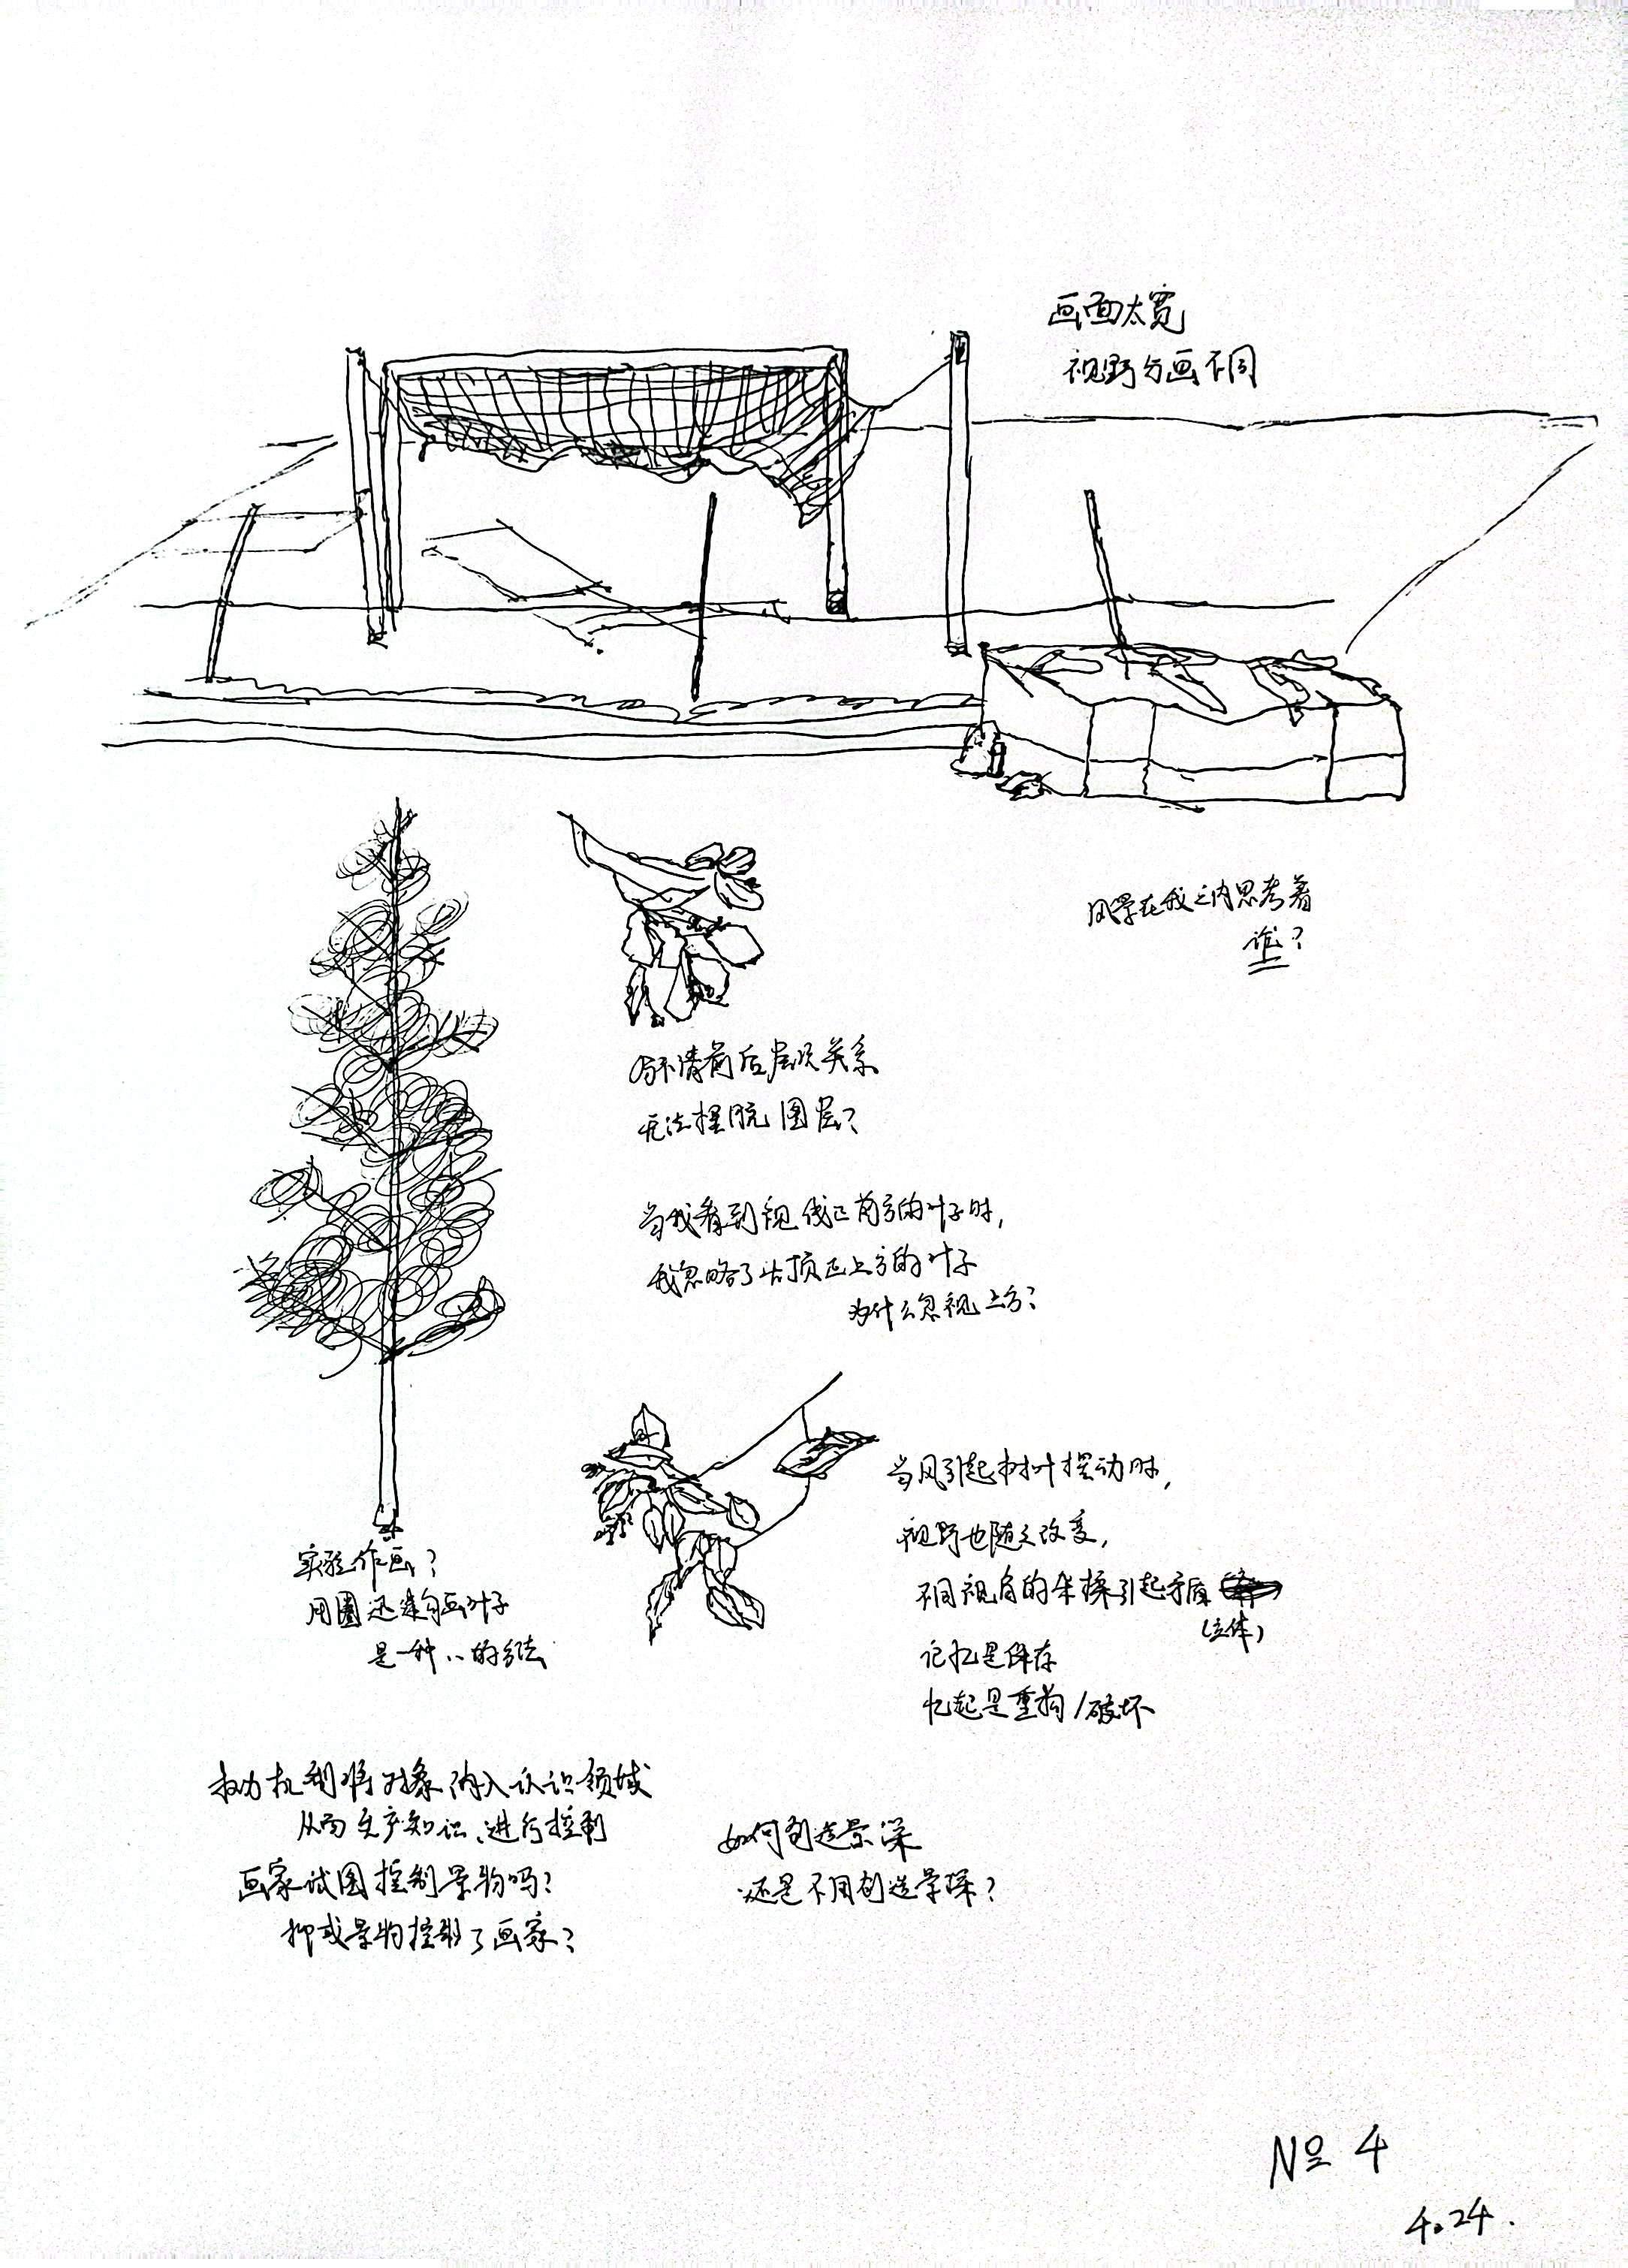 画面太宽
视野与画不同
风景在我之内思考着
谁?
分不清前后层次关系
无法摆脱图层?
当我看到视线正前方的叶子时,
我忽略了头顶正上方的叶子
为什么忽视上方?
当风引起树叶摆动时,
视野也随之改变,
不同视角的杂揉引起矛盾
(立体)
记忆是保存
忆起是重构/破坏
实验作画?
用圈迅速勾画叶子
是一种、、的方法
权力机制将对象纳入认识领域
从而生产知识、进行控制
画家试图控制景物吗?
抑或景物控制了画家?
如何创造景深
还是不用创造景深?
№ 4
4.24.